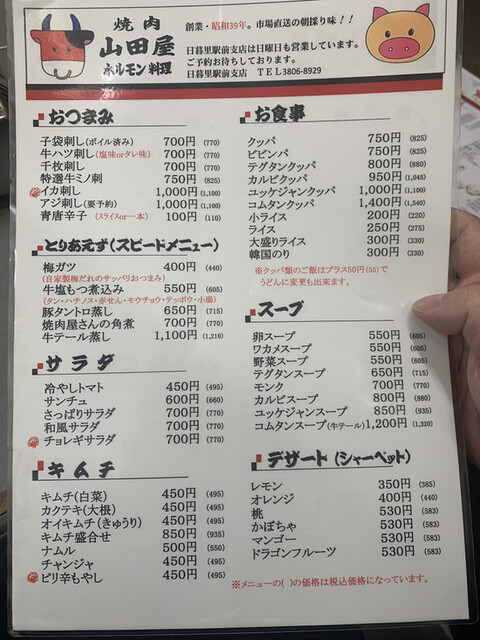 焼肉
山田屋
ホルモン料理
創業・昭和39年。市場直送の朝採り味！！
日暮里駅前支店は日曜日も営業しています。
ご予約お待ちしております。
日暮里駅前支店 TEL3806-8929
おつまみ
子袋刺し(ボイル済み) 700円 (770)
牛ハツ刺し(塩味orタレ味) 700円 (770)
千枚刺し 700円 (770)
特選牛ミノ刺 750円 (825)
イカ刺し 1,000円 (1,100)
アジ刺し(要予約) 1,000円 (1,100)
青唐辛子 (スライスor一本) 100円 (110)
とりあえず(スピードメニュー)
梅ガツ 400円 (440)
(自家製梅だれのサッパリおつまみ)
牛塩もつ煮込み 550円 (605)
(タン・ハチノス・赤せん・モウチョウ・テッポウ・小腸)
豚タントロ蒸し 650円 (715)
焼肉屋さんの角煮 700円 (770)
牛テール蒸し 1,100円 (1,210)
サラダ
冷やしトマト 450円 (495)
サンチュ 600円 (660)
さっぱりサラダ 700円 (770)
和風サラダ 700円 (770)
チョレギサラダ 700円 (770)
キムチ
キムチ(白菜) 450円 (495)
カクテキ(大根) 450円 (495)
オイキムチ(きゅうり) 450円 (495)
キムチ盛合せ 850円 (935)
ナムル 500円 (550)
チャンジャ 450円 (495)
ピリ辛もやし 450円 (495)
お食事
クッパ 750円 (825)
ビビンバ 750円 (825)
テグタンクッパ 800円 (880)
カルビクッパ 950円 (1,045)
ユッケジャンクッパ 1,000円 (1,100)
コムタンクッパ 1,400円 (1,540)
小ライス 200円 (220)
ライス 250円 (275)
大盛りライス 300円 (330)
韓国のり 300円 (330)
※クッパ類のご飯はプラス50円(55)で
うどんに変更も出来ます。
スープ
卵スープ 550円 (605)
ワカメスープ 550円 (605)
野菜スープ 550円 (605)
テグタンスープ 650円 (715)
モンク 700円 (770)
カルビスープ 800円 (880)
ユッケジャンスープ 850円 (935)
コムタンスープ(牛テール) 1,200円 (1,320)
デザート(シャーベット)
レモン 350円 (385)
オレンジ 400円 (440)
桃 530円 (583)
かぼちゃ 530円 (583)
マンゴー 530円 (583)
ドラゴンフルーツ 530円 (583)
※メニューの( )の価格は税込価格になっています。